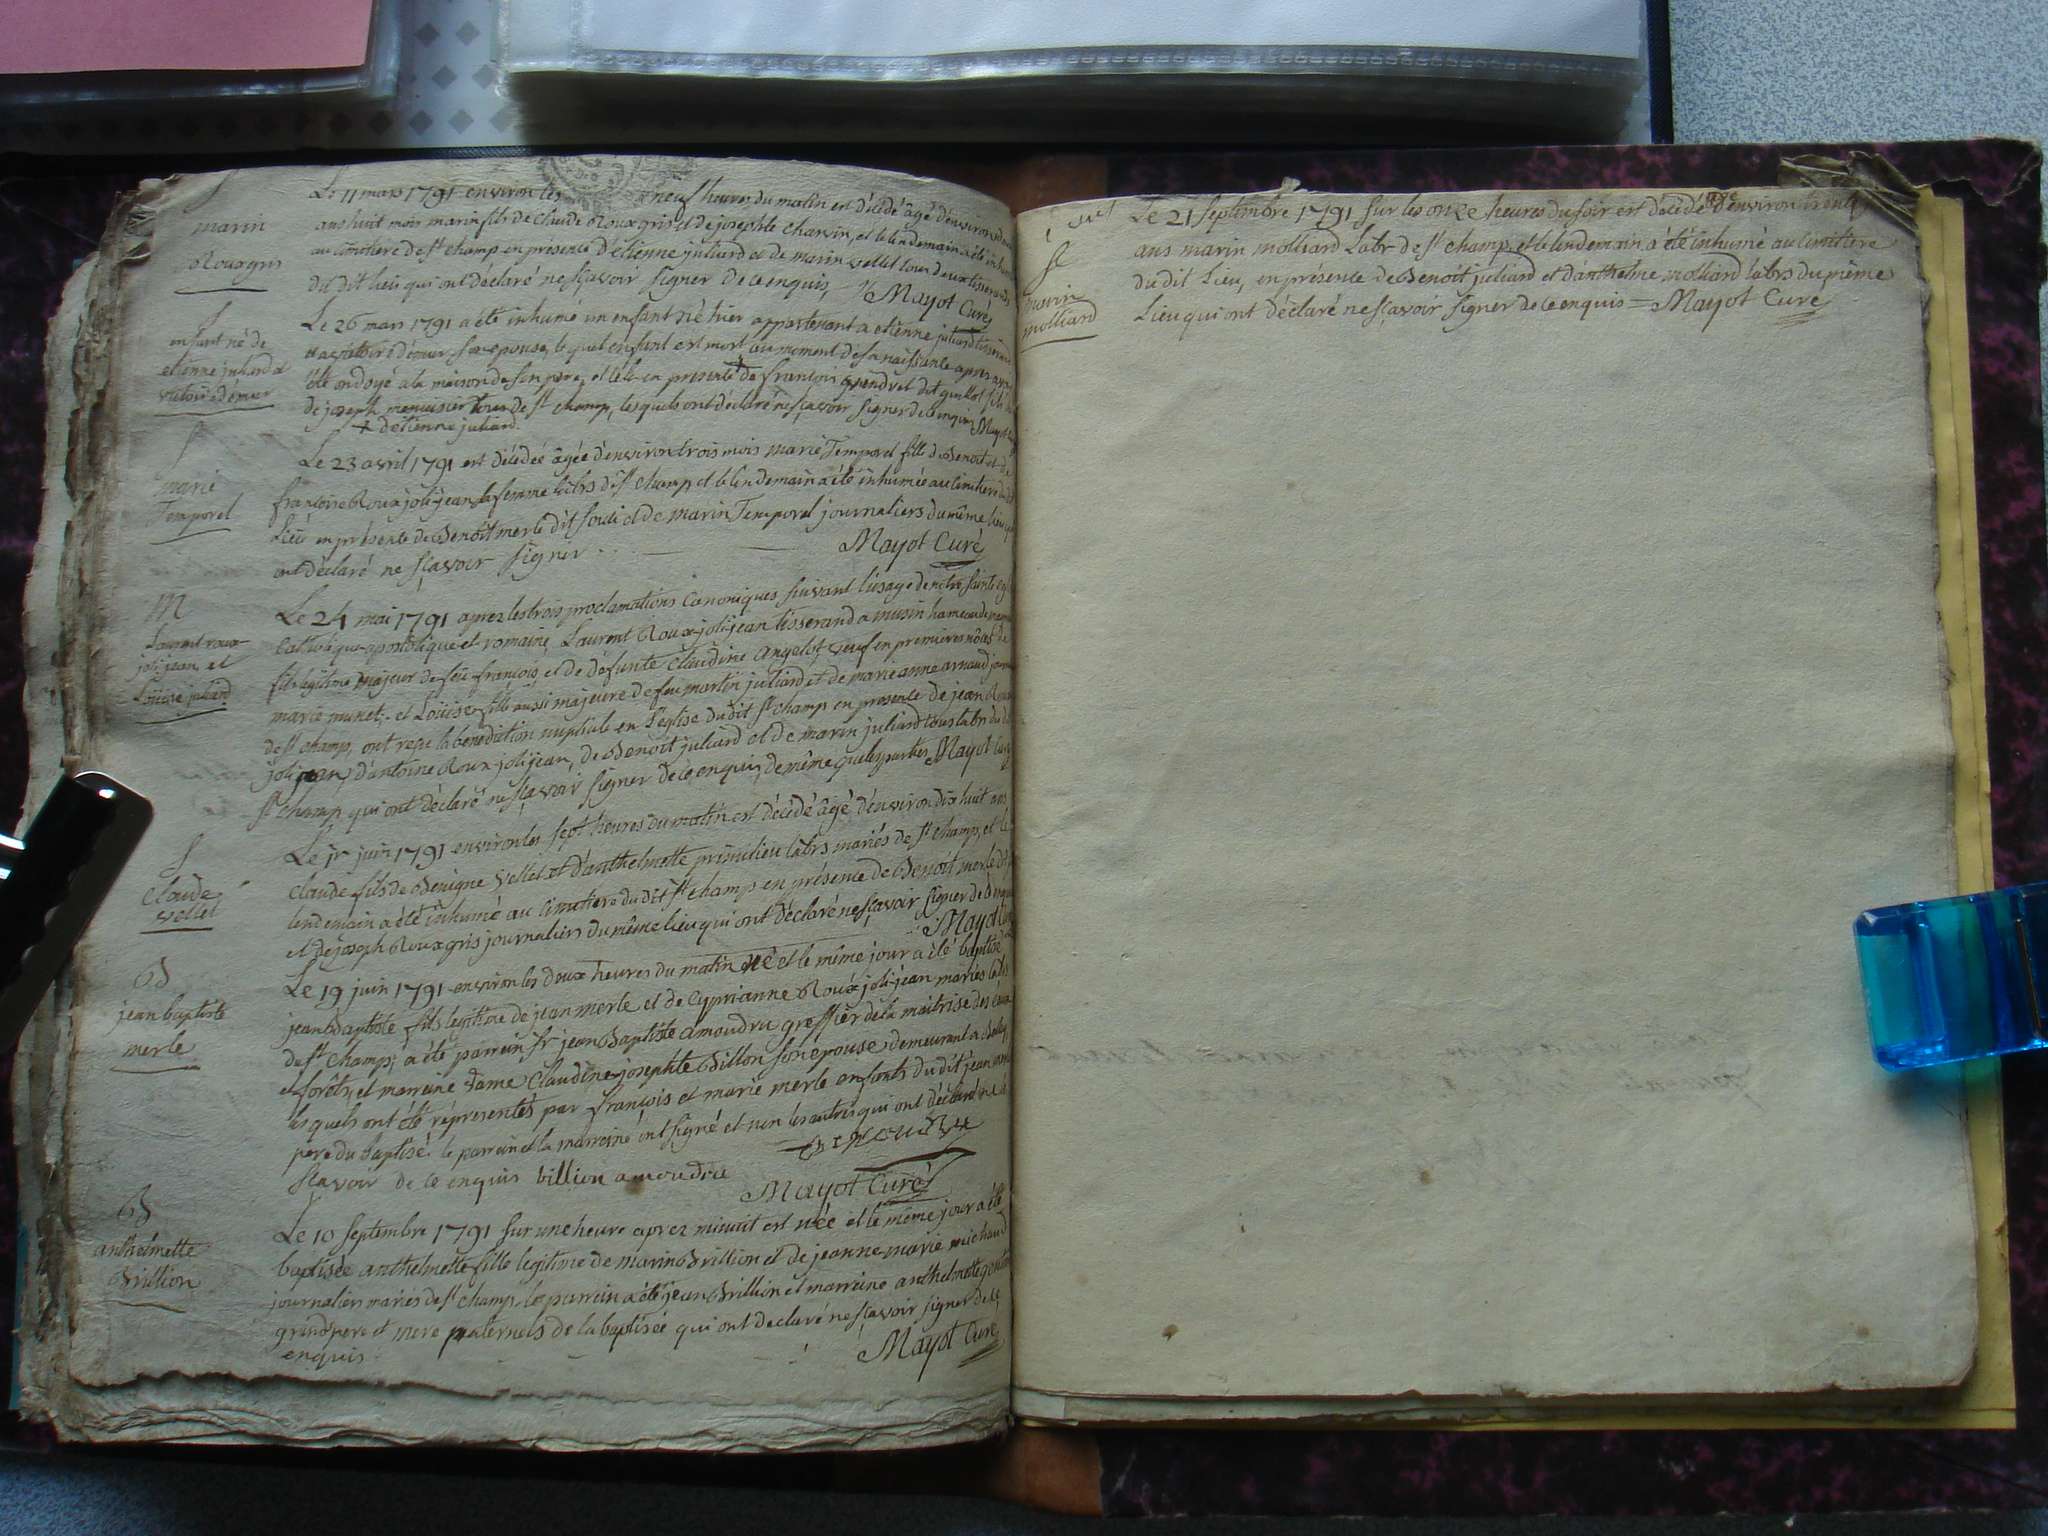 S
marin
Rouxgris
Le 11 mars 1791 environ les neuf heures du matin est décédé âgé d'environ deux
ans huit mois marin fils de claude Roux gris et de josephte charvin, et le lendemain a été inhumé
au cimitiere de St champ en présence d'étienne juliard et de marin vellet tous deux tisserands
du dit lieu qui ont déclaré ne sçavoir signer de ce enquis, Mayot Curé
S
enfant né de
etienne juliard et
victoire démeur
Le 26 mars 1791 a été inhumé un enfant né hier appartenant a etienne juliard tisserand
et a victoire démeur son epouse, le quel enfant est mort au moment de sa naissance apres avoir
été ondoyé a la maison de son pere, et le en presence + de francois gendret dit guillot fils
de joseph menuisier tous de St champ, lesquels ont déclaré ne sçavoir signer de ce enquis Mayot
+ d'etienne juliard.
S
marie
Temporel
Le 23 avril 1791 est décédée âgée d'environ trois mois marie Temporel fille de Benoit et de
francoise Roux joli-jean sa femme labrs de St champ et le lendemain a été inhumée au cimitiere du dit
Lieu en présence de Benoit merle dit soudi et de marin Temporel journaliers du même lieu qui
ont déclaré ne sçavoir signer Mayot Curé
M
Laurent roux
joli jean et
Loüise juliard
Le 24 mai 1791 aprez les trois proclamations canoniques suivant l'usage de notre sainte église
catholique apostolique et romaine, Laurent Roux joli jean tisserand a musin hameau de
fils légitime majeur de feu françois, et de défunte claudine angelot, veuf en premieres nôces de
marie munet, et Loüise fille aussi majeure de feu martin juliard et de marie anne arnaud
de St champ, ont reçu la bénédiction nuptiale en l'église du dit St champ en presence de jean Roux
joli jean, d'antoine Roux joli jean, de Benoit juliard et de marin juliard tous labrs du dit
St champ qui ont déclaré ne sçavoir signer de ce enquis, de même que les parties Mayot Curé
S
Claude
vellet
Le 1r juin 1791 environ les sept heures du matin est décédé âgé d'environ dix huit ans
claude fils de Benigne vellet et d'anthelmette primilieu labrs mariés de St champ, et le
lendemain a été inhumé au cimitiere du dit St champ en présence de Benoit merle dit
et de joseph Roux gris journaliers du même lieu qui ont déclaré ne sçavoir signer de ce enquis
Mayot Curé
B
jean baptiste
merle
Le 19 juin 1791 environ les deux heures du matin est né et le même jour a été baptisé
jean Baptiste fils legitime de jean merle et de Cyprianne Roux joli jean mariés labrs
de St champ; a été parrein sr jean Baptiste amoudru greffier de la maitrise des eaux
et forêts, et marreine dame Claudine josephte Billion son epouse demeurant a Belley,
les quels ont été réprésentés par françois et marie merle enfants du dit jean merle
pere du baptisé. le parrein et la marreine ont signé et non les autres qui ont déclaré ne
sçavoir de ce enquis billion amoudru amoudru
Mayot Curé
B
anthelmette
Brillion
Le 10 septembre 1791 sur une heure aprez minuit est née et le même jour a été
baptisée anthelmette fille legitime de marin Brillion et de jeanne marie michaud
journaliers mariés de St champ, le parrein a été jean Brillion et marreine anthelmette
grand pere et mere paternels de la baptisée qui ont declaré ne sçavoir signer de ce
enquis Mayot Curé
S
marin
molliard
Le 21 septembre 1791 sur les onze heures du soir est décédé d'environ trente
ans marin molliard Labr de St champ, et le lendemain a été inhumé au cimitiere
du dit Lieu, en présence de Benoit juliard et d'anthelme molliard labrs du même
Lieu qui ont déclaré ne sçavoir signer de ce enquis = Mayot Curé